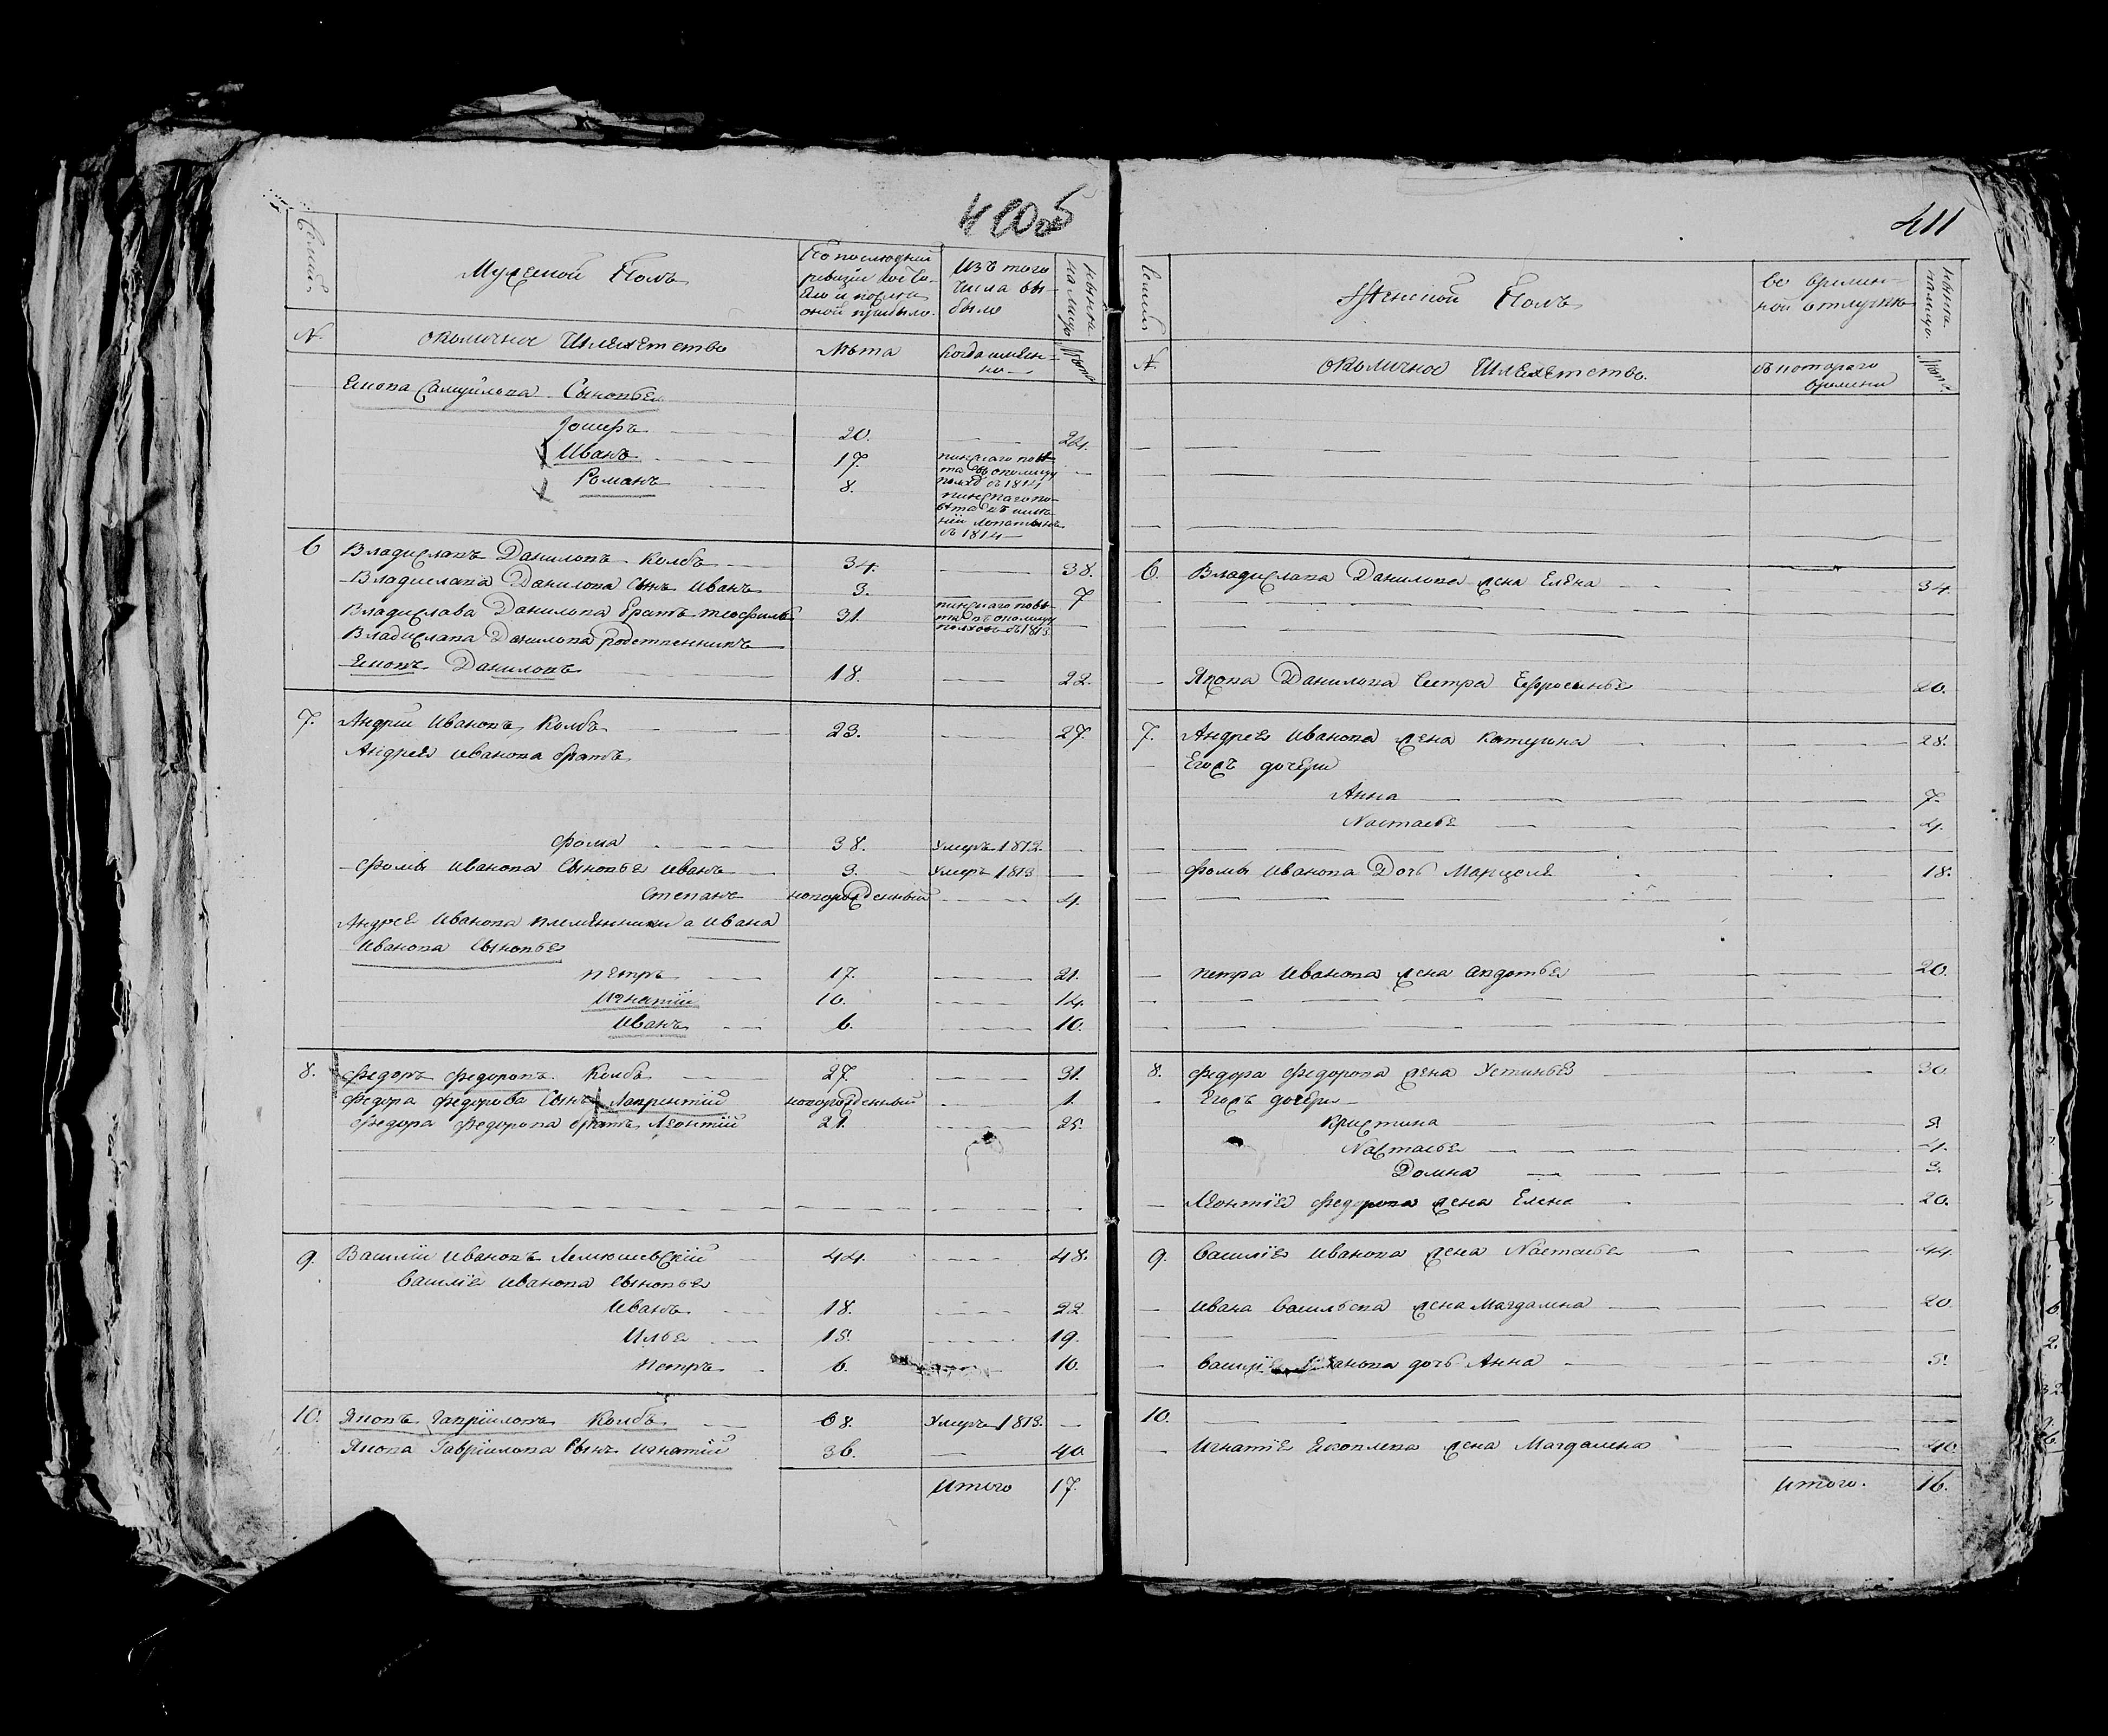 410об
Семьи
Мужеской Полъ
По последней
ревизии состо-
яло и после
оной прибыло.
Изъ того
числа вы-
было
ныне
на лицо
№.
околичное Шляхетство
Лѣта
Когда имян-
но
лѣта
Якова Самуйлова Сыновья
Іосифъ 20. 24.
Иванъ 17.
Романъ 8.
пинскаго повѣ-
полкъ въ 1814
пинскаго по-
вѣта въ имѣ-
ніи
въ 1814
6 Владиславъ Даниловъ Колбъ 34. 38.
Владислава Данилова Сынъ Иванъ 3. 7
Владислава Данилова братъ Теофилъ 31. пинскаго повѣ-
Владислава Данилова родственникъ
Яковъ Даниловъ 18. 22.
7. Андрей Ивановъ Колбъ 23. 27.
Андрея Иванова братъ
Фома 38. Умеръ 1812.
Фомы Иванова Сыновья Иванъ 3. Умеръ 1813
Степанъ новорожденный 4.
Андрея Иванова племянники а Ивана
Иванова Сыновья
Петръ 17. 21.
Игнатій 10. 14.
Иванъ 6. 10.
8. Федоръ Федоровъ Колбъ 27. 31.
Федора Федорова Сынъ Лаврентій новорожденный 1.
Федора Федорова братъ Леонтій 21. 25.
9. Василій Ивановъ 44. 48.
Василія Иванова Сыновья
Иванъ 18. 22
Илья 15. 19.
Петръ 6. 10.
10. Яковъ Гавриловъ Колбъ 68. Умеръ 1813.
Якова Гаврилова Сынъ Игнатій 36. 40
Итого 17.
411
Семьи
Женской Полъ
во времен-
ной отлучке
ныне
налицо.
№.
околичное Шляхетство.
съ котораго
времени
лѣта
6. Владислава Данилова жена Елена 34
Якова Данилова Сестра Ефросинья 20.
7. Андрея Иванова жена Катерина 28.
Егожъ дочери
Анна 7.
Настасья 4.
Фомы Иванова Дочь Марцеля 18.
Петра Иванова жена Авдотья 20.
8. Федора Федорова жена Устинья 30
Егожъ дочери
Кристина 8
Настасья 4.
Домна 3.
Леонтія Федорова жена Елена 20.
9. Василія Иванова жена Настасья 44.
Ивана Васильева жена Магдалина 20
Василія Иванова дочь Анна 8.
10.
Игнатія Яковлева жена Магдалена 40
Итого. 16.